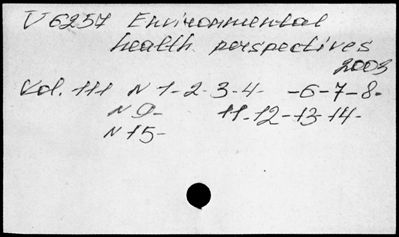 V 6257 Environmental
health perspectives
2003
Vol. 111 N 1-2-3-4- -6-7-8-
N 9- 11-12-13-14-
N 15-